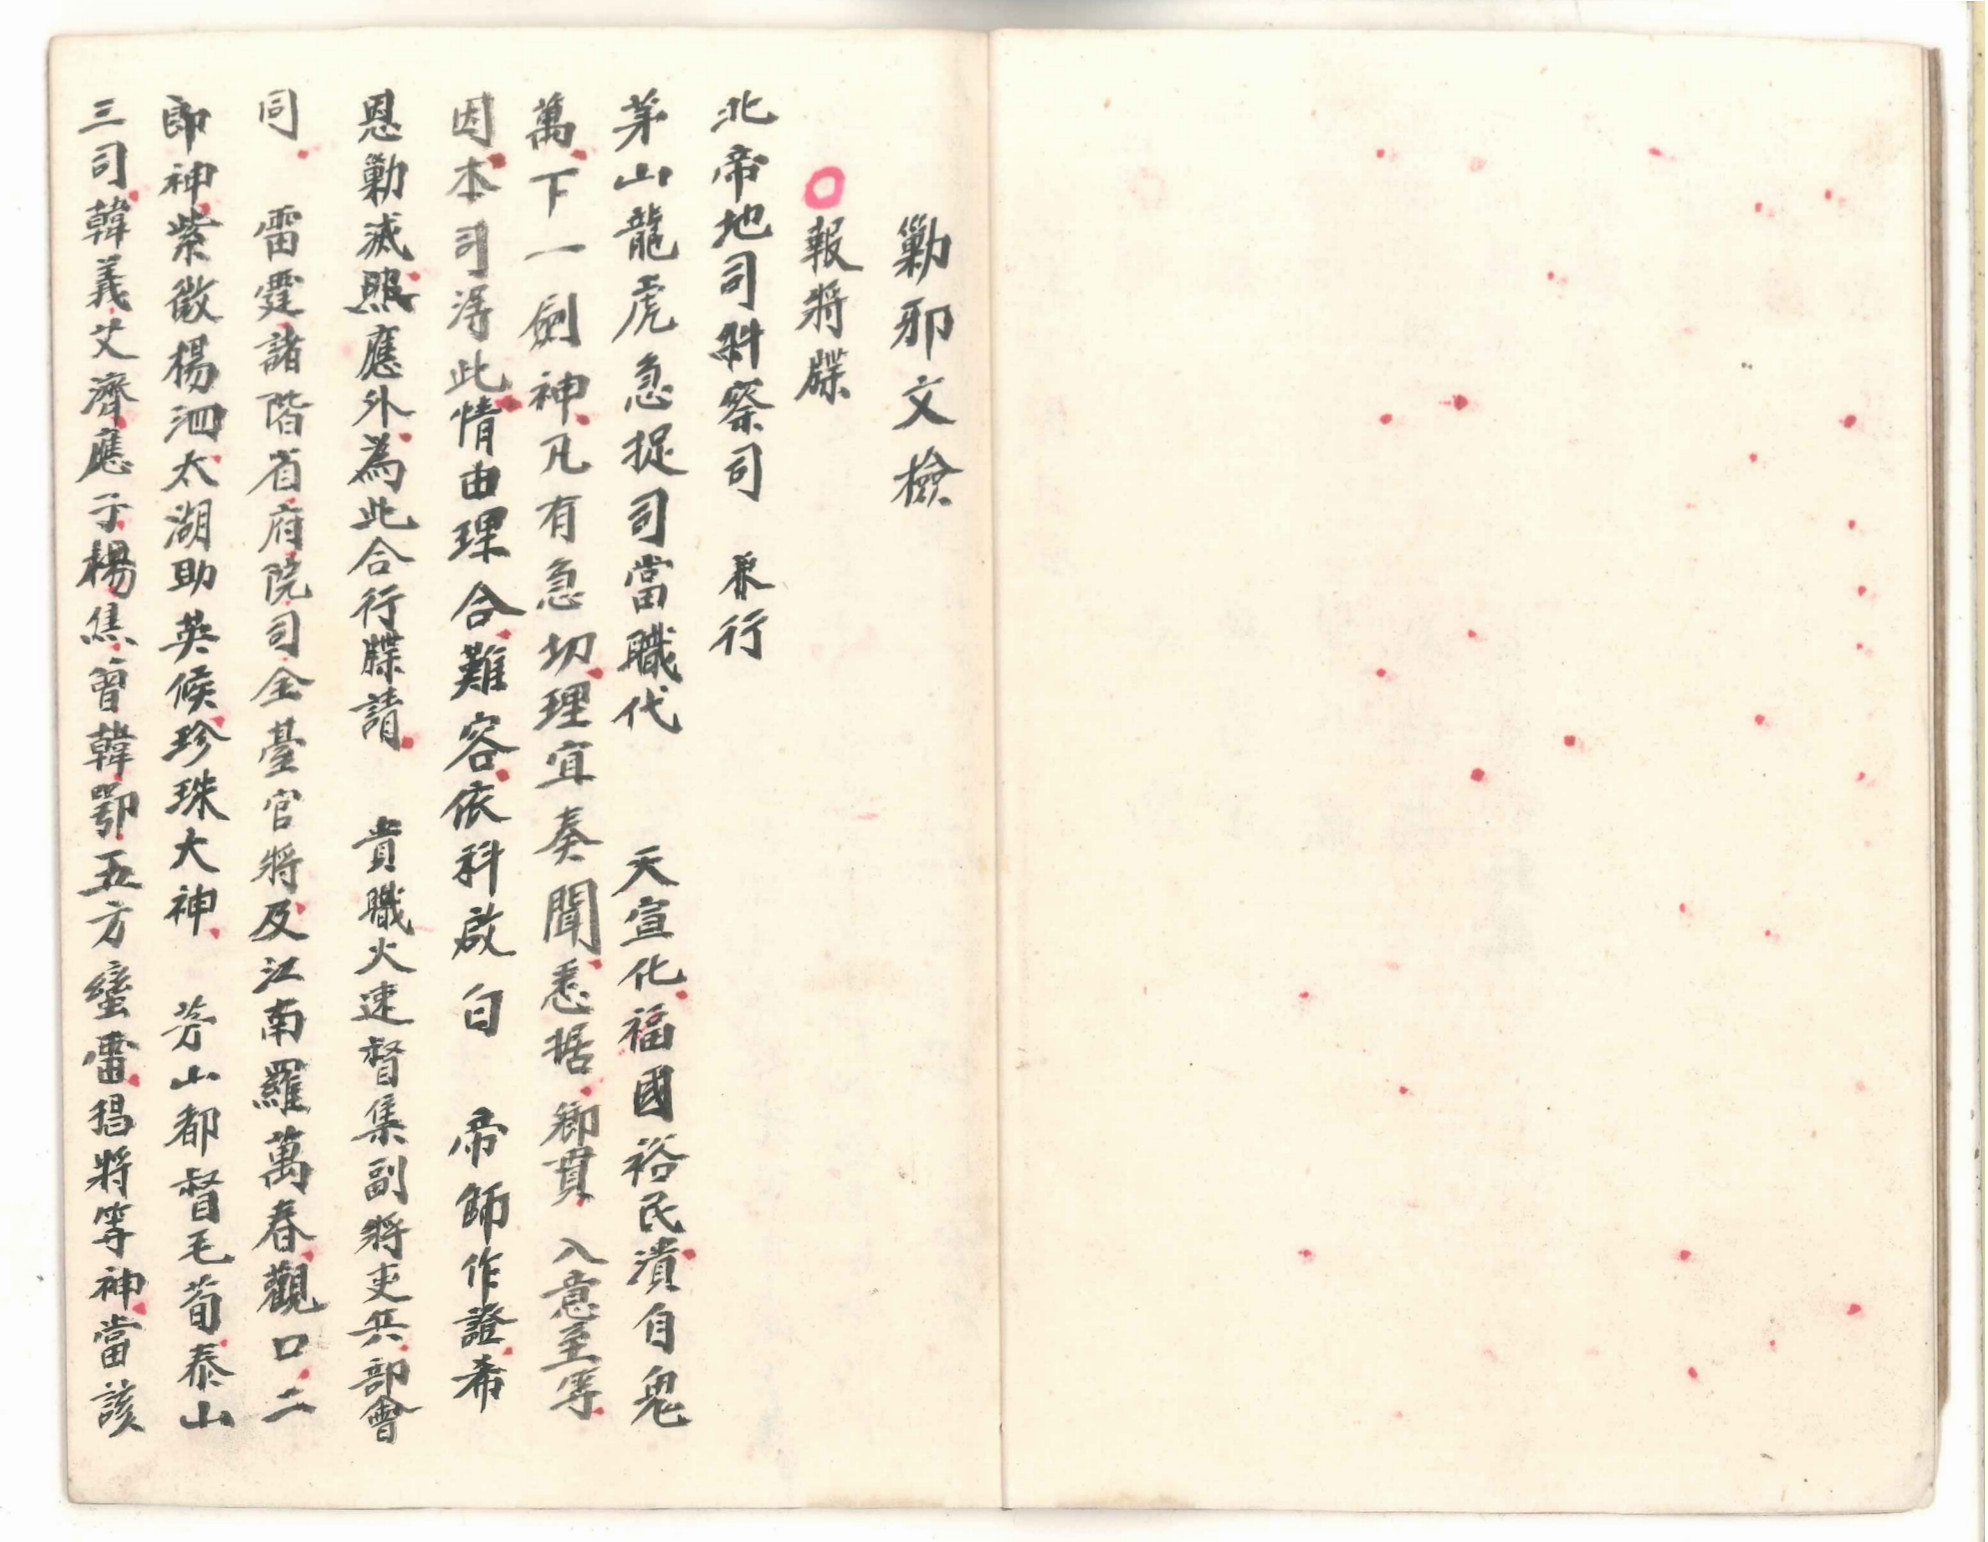 勦邪文檢
○報將牒
北帝地司糾察司　兼行
茅山龍虎急捉司當職代　天宣化福國裕民潰自鬼
萬下一劍神凡有急切理宜奏聞悉据鄉貫入意至等
因本司得此情由理合難容依科啟白　帝師作證希
恩勦滅照應外為此合行牒請　貴職火速督集副將吏兵部會
同　雷霆諸階省府院司全臺官將及江南羅萬春觀口二
郎神紫微楊泗太湖助英候珍珠大神　茅山都督毛荀泰山
三司韓義艾濟應子楊焦曾韓鄂五方蠻雷猖將等神當該